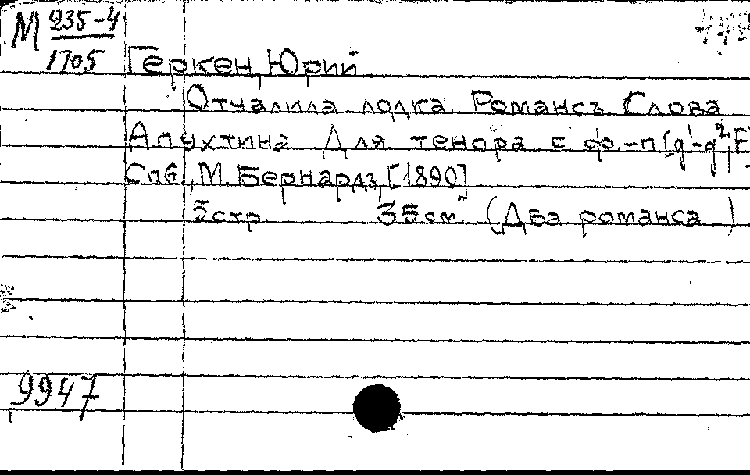 М 235-4
1705
Геркен, Юрий.
Отчалила лодка. Романсъ. Слова
Апухтина. Для тенора с ф.-п. (g'-g²,F
Спб., М. Бернардъ, [1890]
5 стр. 35 см. (Два романса )
9947